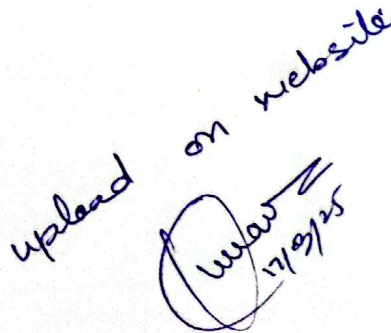 upload on website
17/03/25